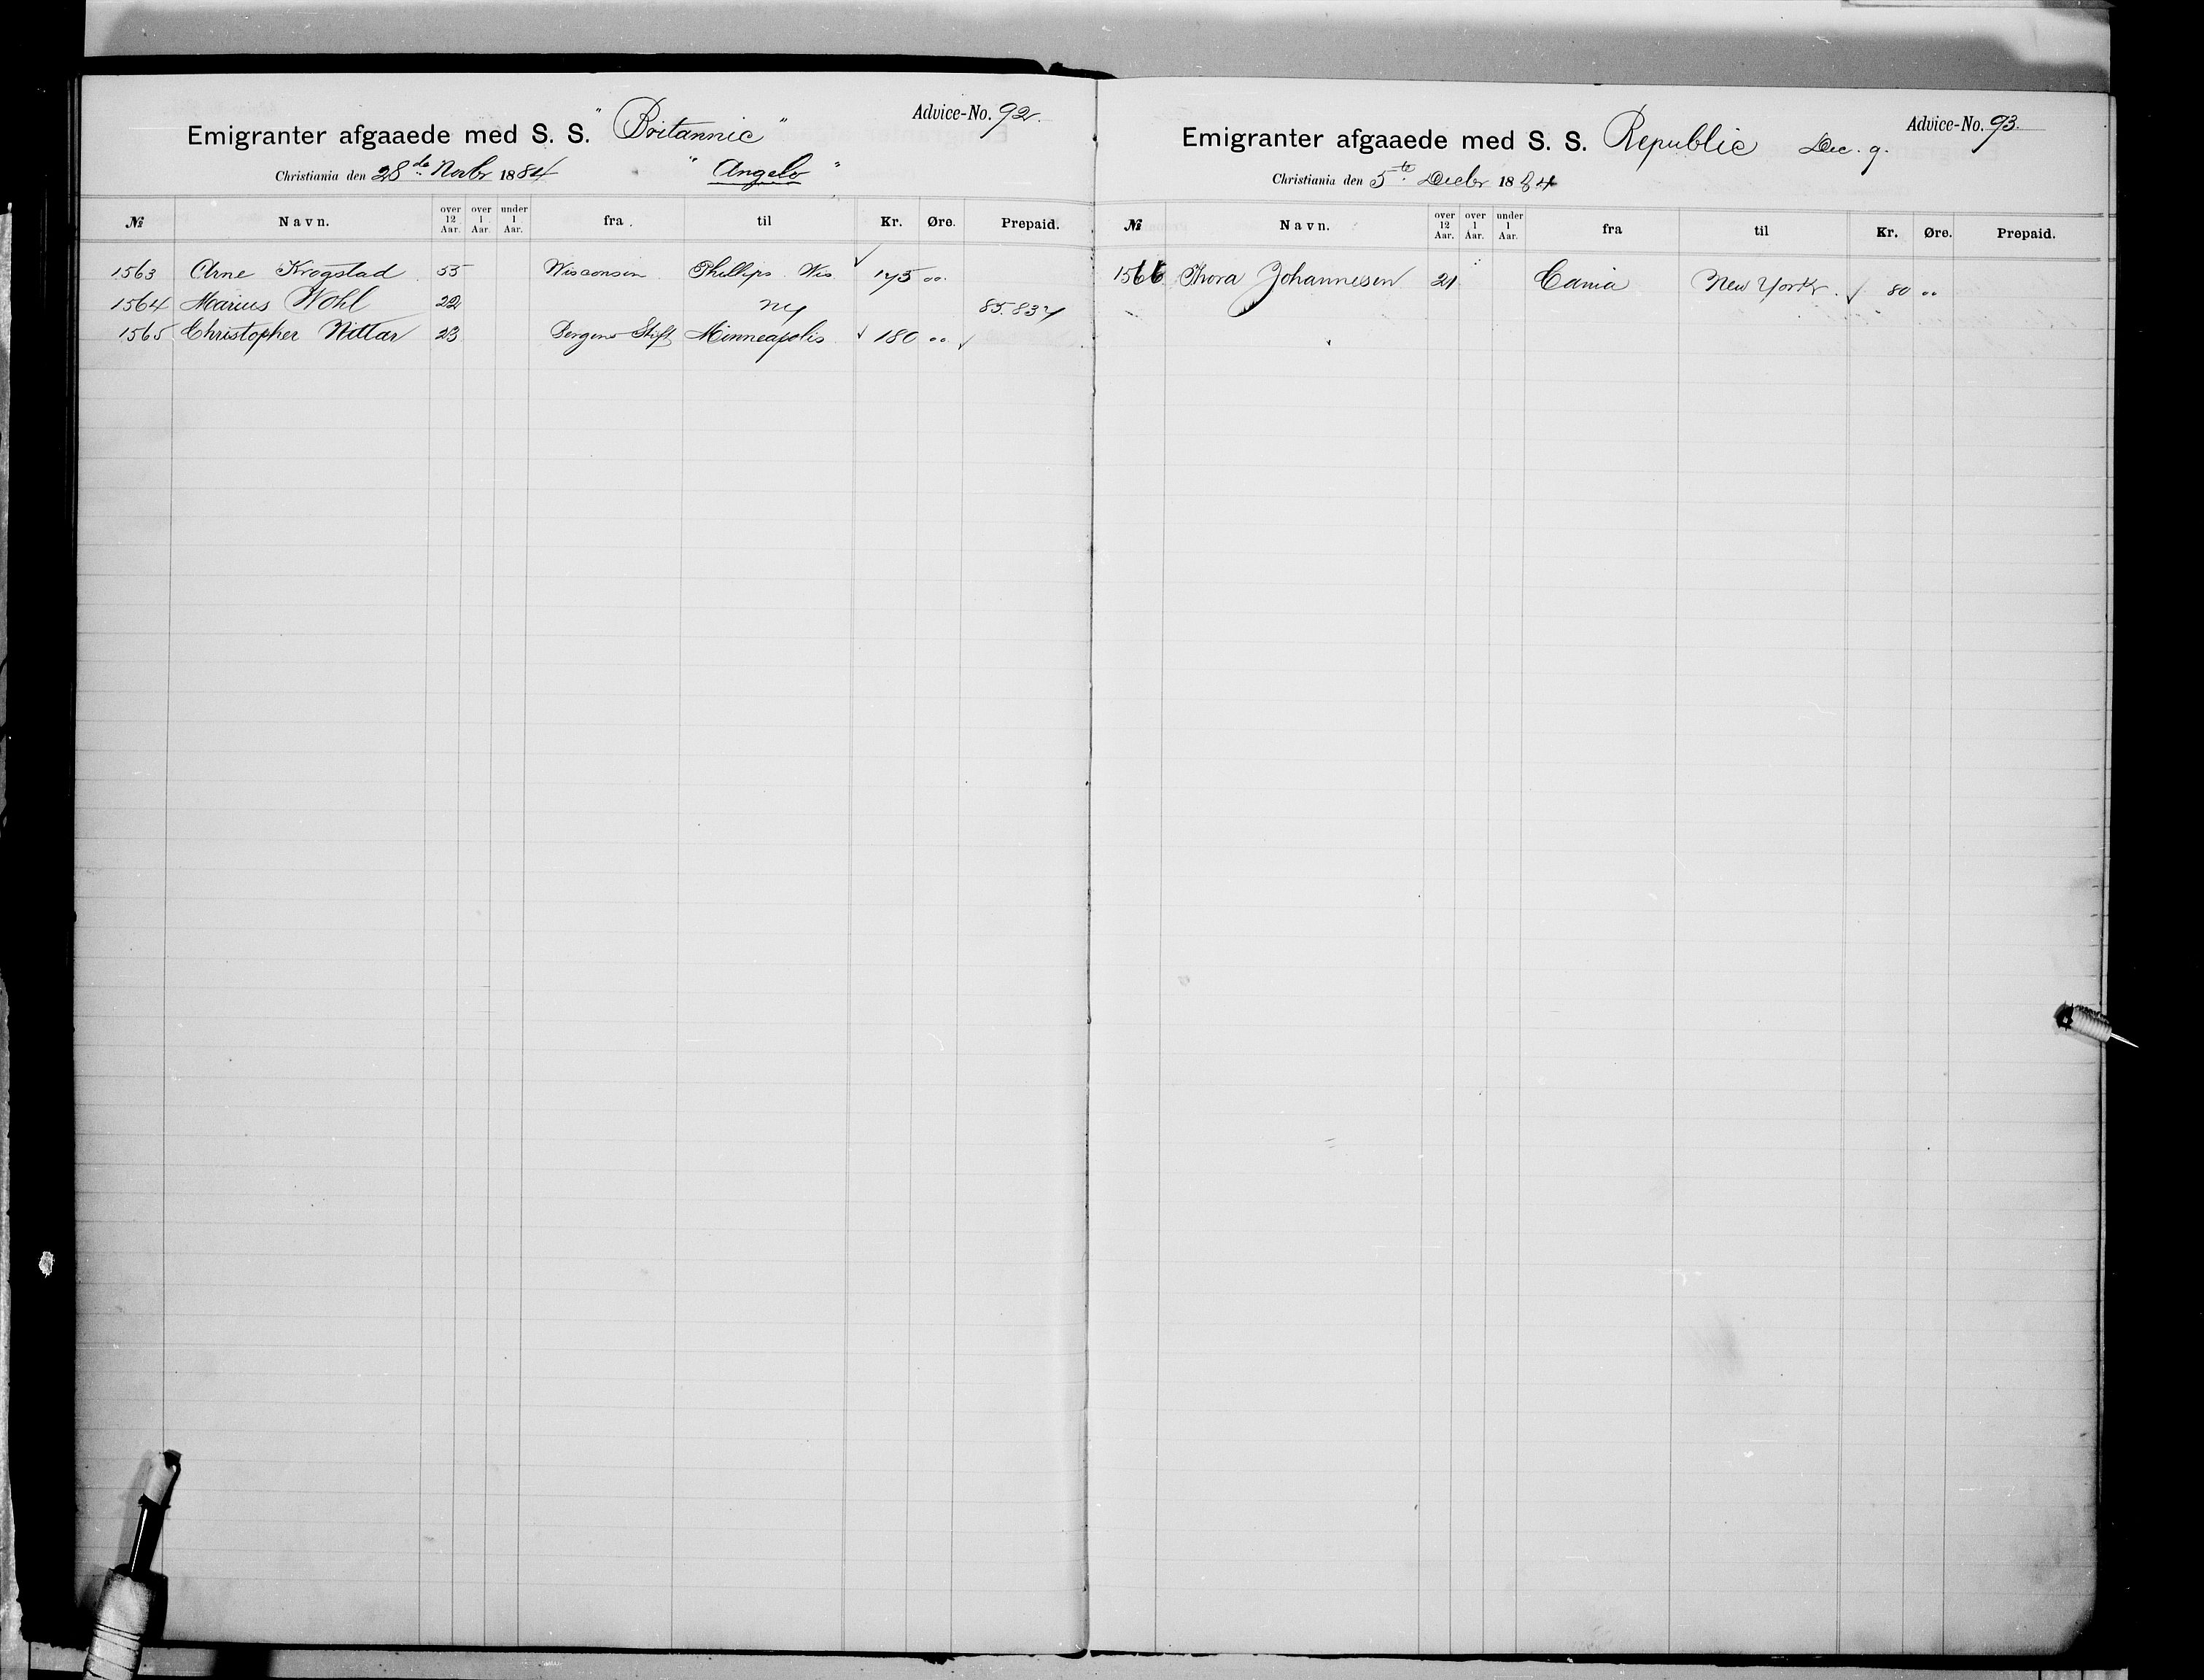 Advice-No. 92.
Emigranter afgaaede med S. S. "Britannic"
Christiania den 28de Novbr 1884 "Angelo"
№ Navn. over 12 Aar. over 1 Aar. under 1 Aar. fra til Kr. Øre. Prepaid.
1563 Arne Krogstad 55 Wisconsin Phillips Wis 175 00.
1564 Marius Wohl 22 NY 85.837
1565 Christopher Nittar 23 Bergens Stift Minneapolis 180 00.
Advice-No. 93.
Emigranter afgaaede med S. S. Republic Dec. 9.
Christiania den 5te Decbr 1884
№ Navn. over 12 Aar. over 1 Aar. under 1 Aar. fra til Kr. Øre. Prepaid.
1566 Thora Johannesen 21 Cania New York. 80 00